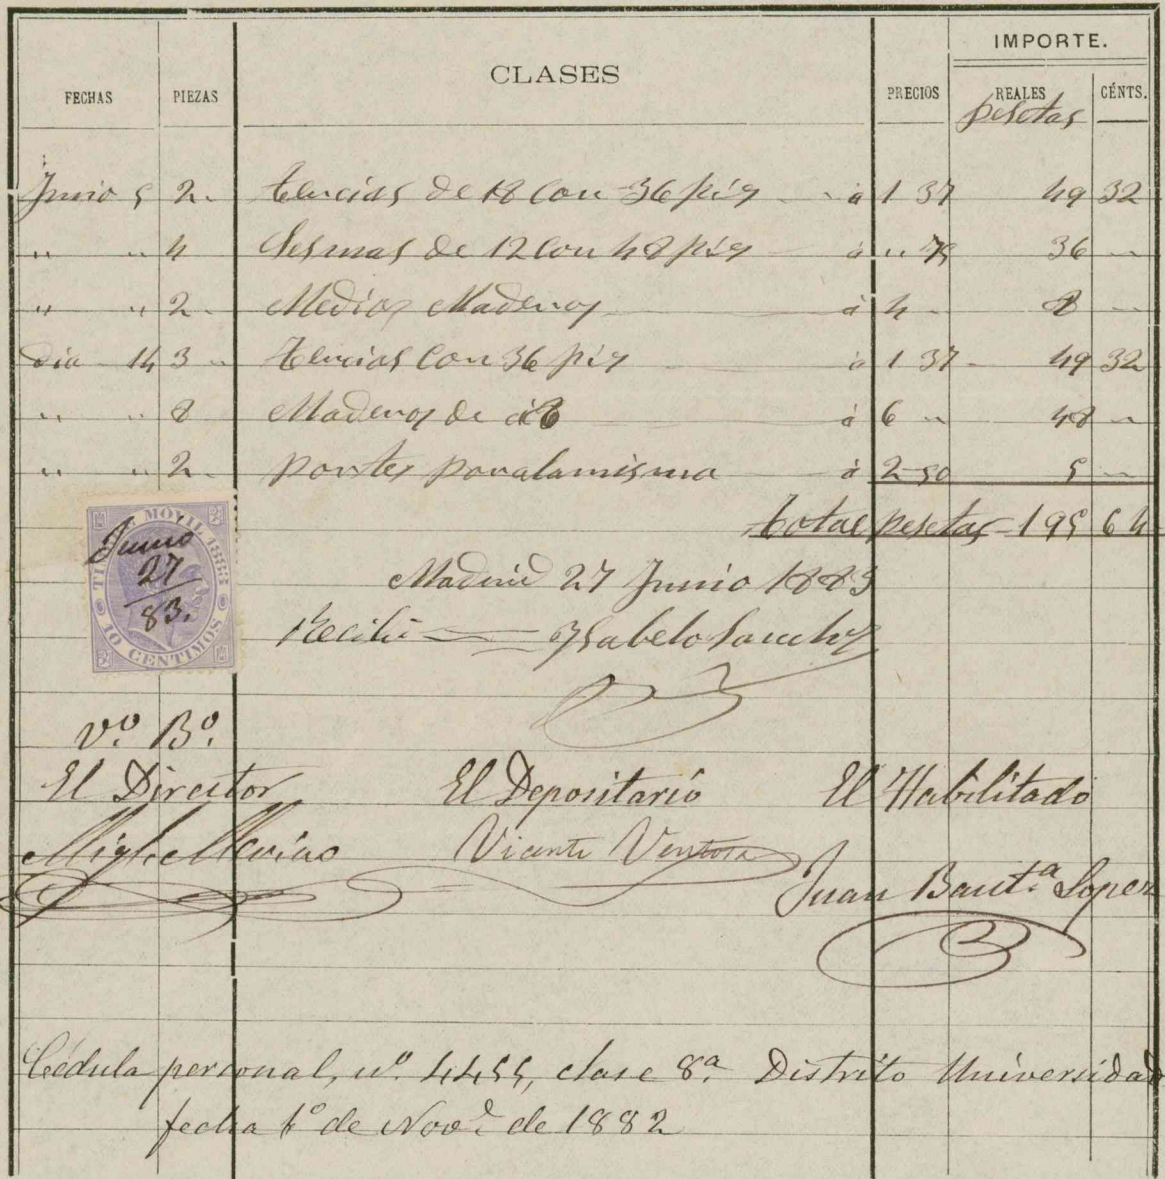 IMPORTE.
FECHAS PIEZAS CLASES PRECIOS REALES CÉNTS.
pesetas
Junio 5 2 " tercias de 18 con 36 pies " á 1 37 49 32
" " 4 Sesmas de 12 con 48 pies á " 75 36 "
" " 2 " Medios Maderos á 4 " 8 "
dia 14 3 " tercias con 36 pies á 1 37 49 32
" " 8 Maderos de á 6 á 6 " 48 "
" " 2 " portes por la misma á 2 50 5 "
total pesetas 195 64
TIMBRE MÓVIL 1883
10 CENTIMOS
Junio
27
83.
Madrid 27 Junio 1883
Recibi Ysabelo Sanchez
Vº Bº
El Director El Depositario El Habilitado
Vicente Ventosa
Juan Bautª Lopez
Cédula personal, nº 4455, clase 8ª Distrito Universidad
fecha 1º de Novᵉ de 1882